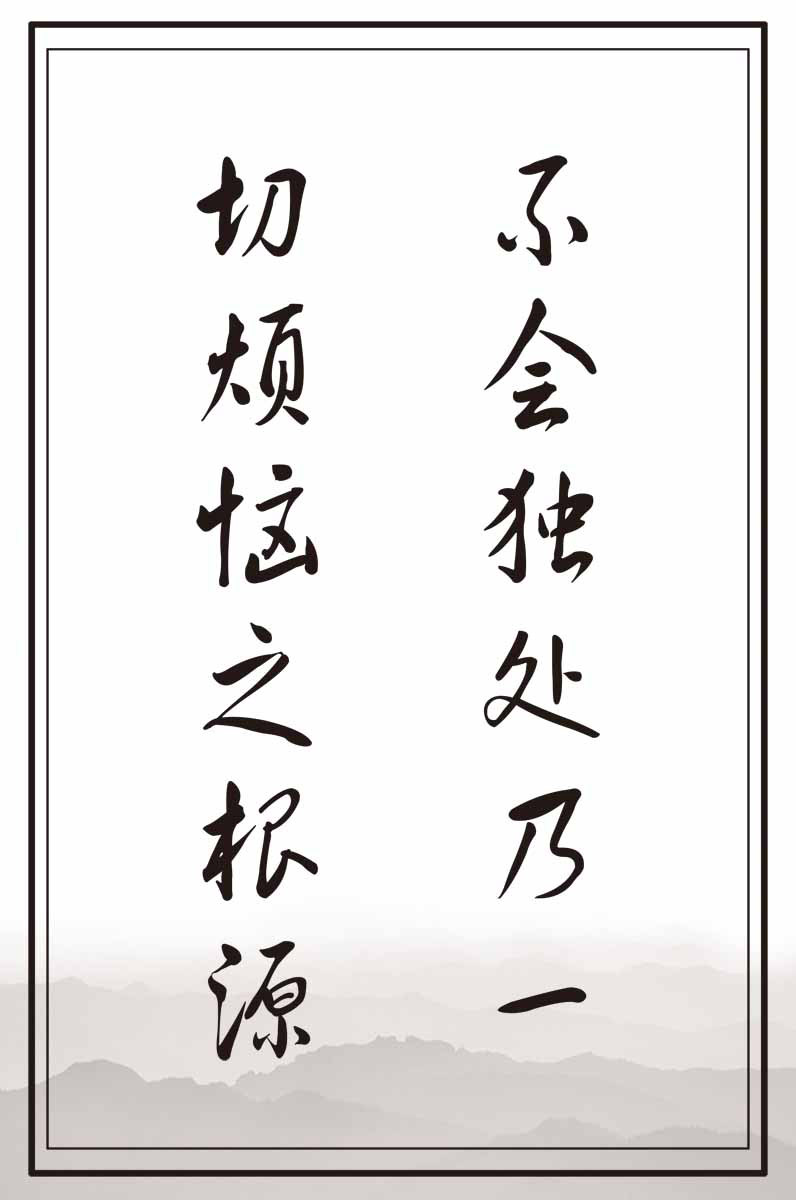 不会独处乃一
切烦恼之根源